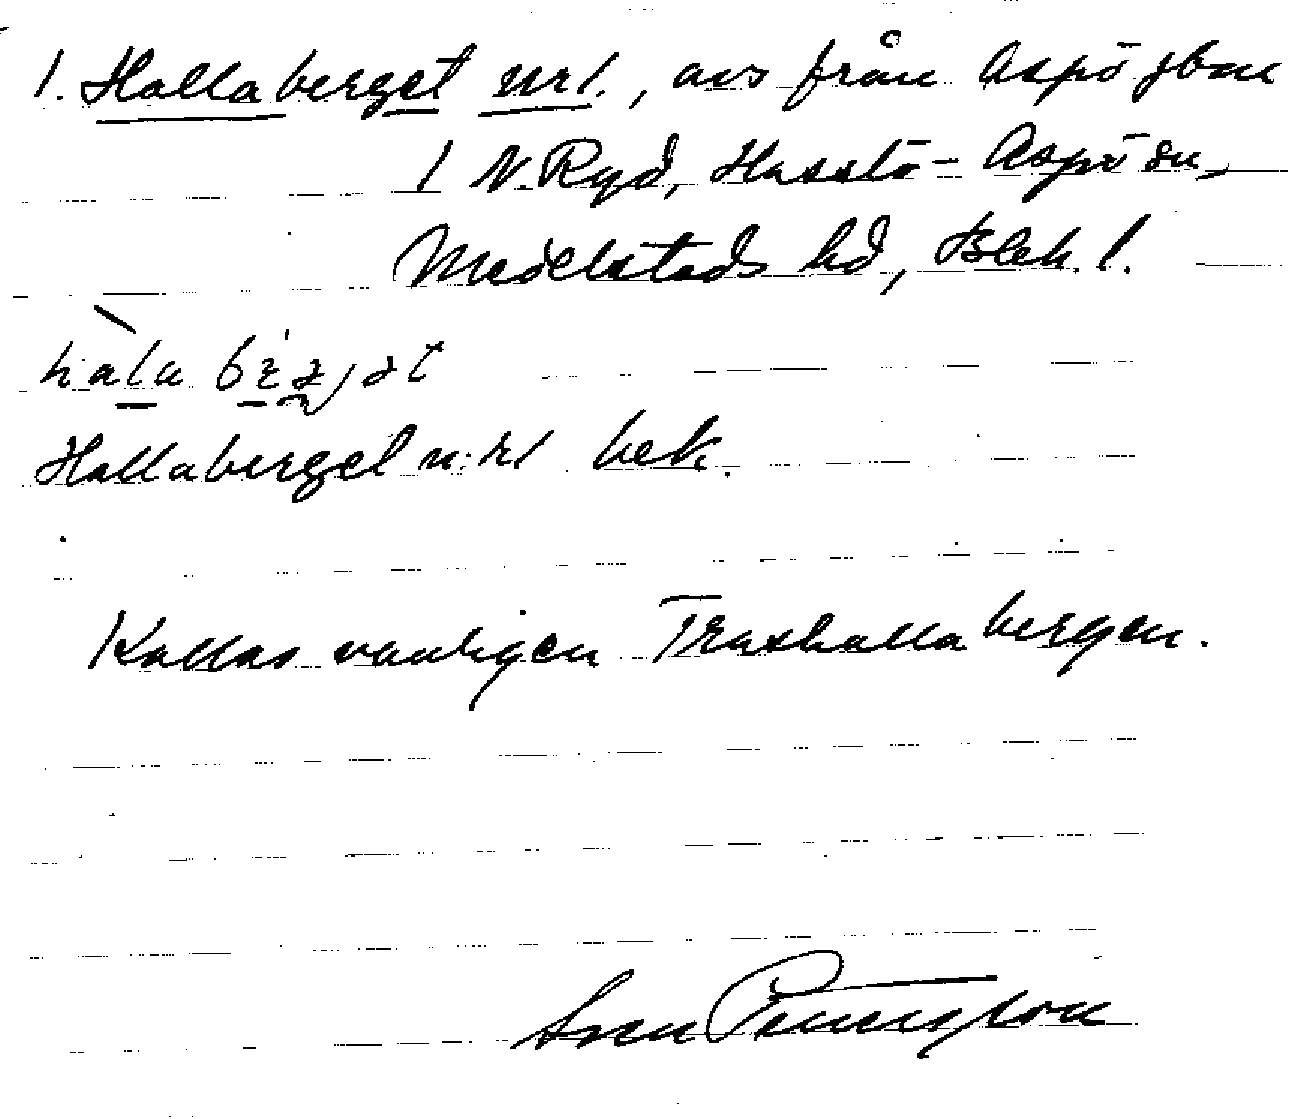 1. Hallaberget nr 1., avs från Aspö jbne
1 N. Ryd, Hasslö-Aspö sn,
Medelstads hd, Blek. l.
Hallaberget n:r 1 bek.
Kallas vanligen Traskallabergen.
Sven